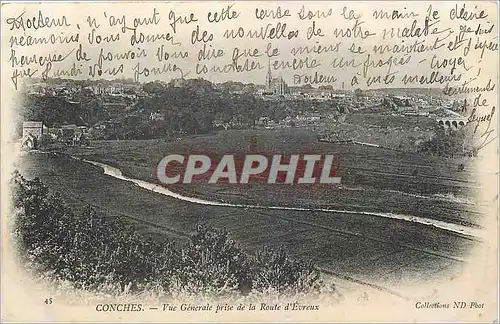 Docteur, n'ayant que cette carte sous la main je désire
néanmoins vous donner des nouvelles de notre malade. Je suis
heureuse de pouvoir vous dire que le mieux se maintient et j'espère
que Lundi vous pourrez constater encore un progrès. Croyez,
Docteur à mes meilleurs
sentiments
de
CPAPHIL.COM
45
CONCHES. — Vue Générale prise de la Route d'Évreux
Collections ND Phot